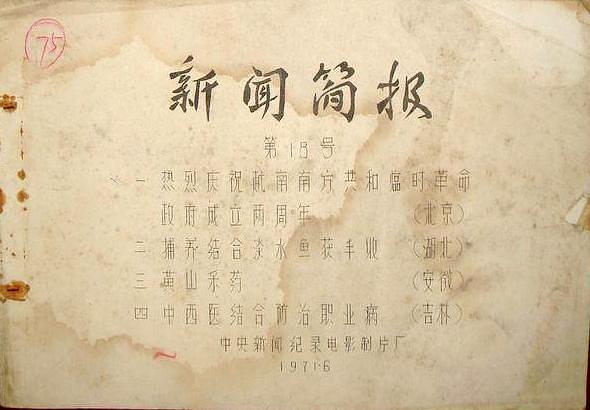 75
新闻简报
第18号
一 热烈庆祝越南南方共和临时革命
政府成立两周年 (北京)
二 捕养结合淡水鱼获丰收 (湖北)
三 黄山采药 (安徽)
四 中西医结合防治职业病 (吉林)
中央新闻纪录电影制片厂
1971·6